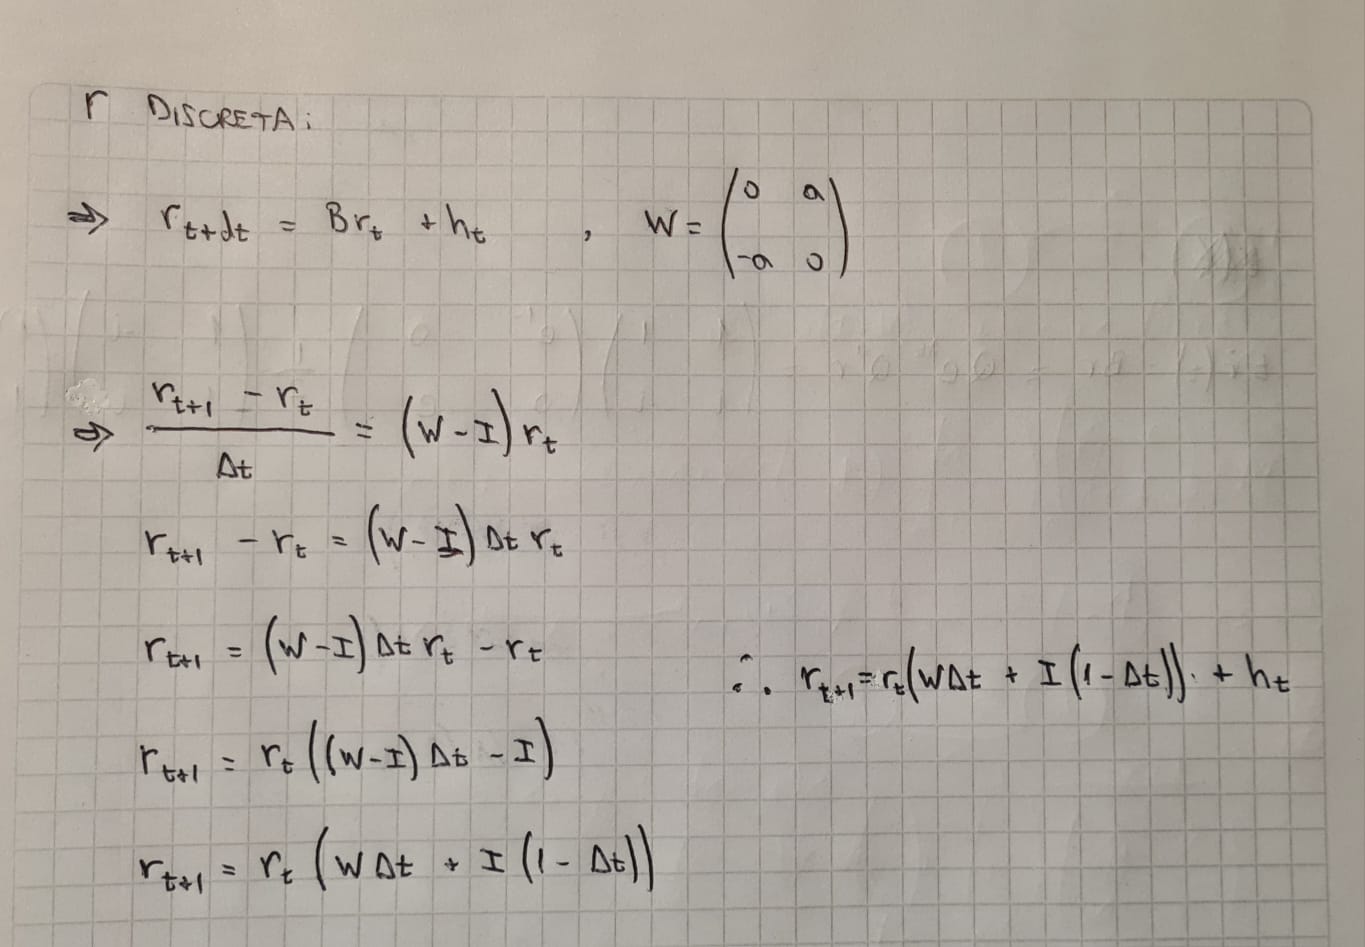 r DISCRETA:
⇒ r_{t+dt} = Br_t + h_t , W = \begin{pmatrix} 0 & a \\ -a & 0 \end{pmatrix}
⇒ \frac{r_{t+1} - r_t}{Δt} = (W - I) r_t
r_{t+1} - r_t = (W - I) Δt r_t
r_{t+1} = (W - I) Δt r_t - r_t
∴ r_{t+1} = r_t (WΔt + I (1 - Δt)) + h_t
r_{t+1} = r_t ((W - I) Δt - I)
r_{t+1} = r_t (W Δt + I (1 - Δt))